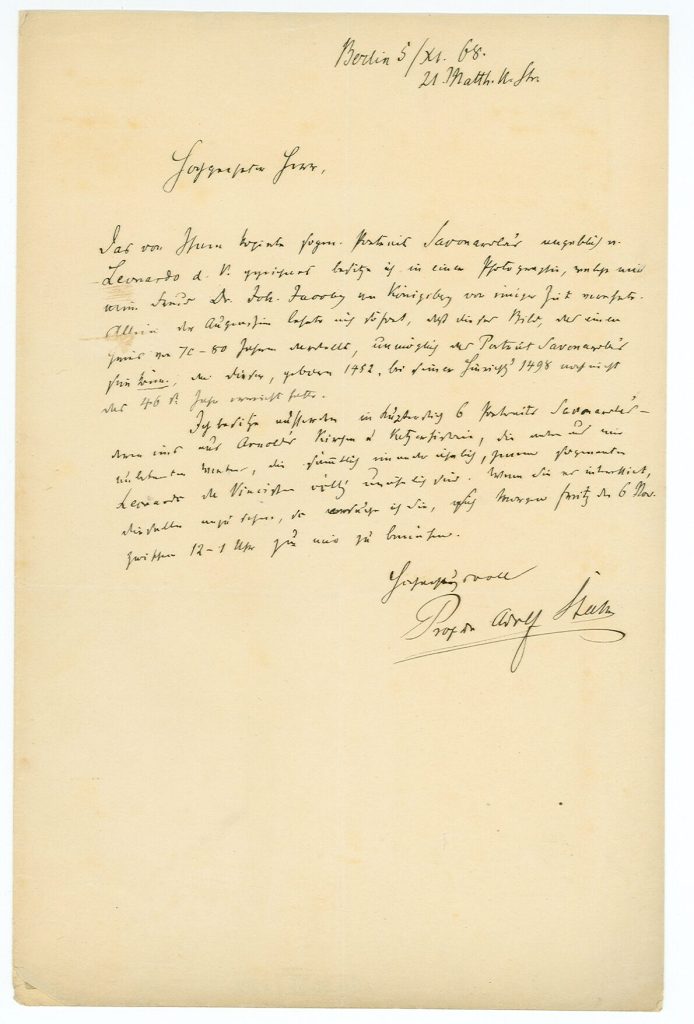 Berlin 5/XI. 68.
21 Matth. K. Str.
Hochgeehrter Herr,
Das von Ihnen kopirte sogen. Portrait Savonarola's angeblich v.
Leonardo d. V. besitze ich in einer Photographie, welche mir
mein Freund Dr. Joh. Jacoby von Königsberg vor einiger Zeit verehrte.
Allein der Augenschein lehrte mich sofort, daß dieses Bild, das einen
Greis von 70–80 Jahren darstellt, unmöglich das Portrait Savonarola's
sein könne, da dieser, geboren 1452, bei seiner Hinricht. 1498 noch nicht
das 46 t. Jahr erreicht hatte.
Ich besitze ausserdem in 6 Portraits Savonarola's –
deren eins aus Arnold's Kirchen u Ketzerhistorie, die andern aus mir
unbekannten Werken, die sämmtlich einander ähnlich, jenem sogenannten
Leonardo da Vincischen völlig unähnlich sind. Wenn Sie es interessirt,
dieselben anzusehen, so ich Sie, sich Morgen den 6 Nov.
zwischen 12–1 Uhr zu mir zu bemühen.
Hochachtungsvoll
Prof Dr Adolf Stahr